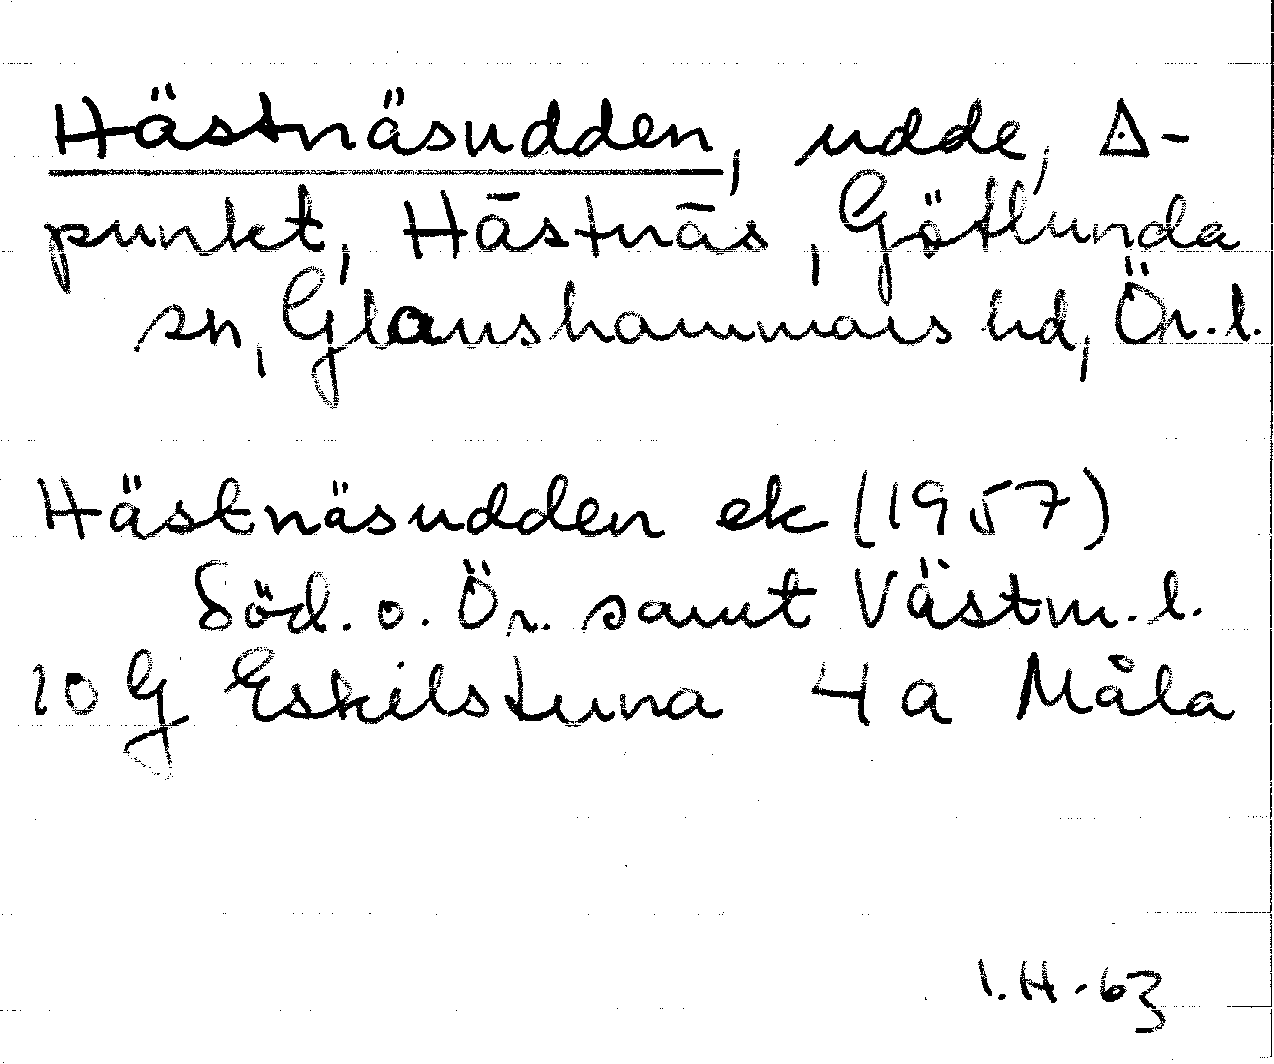 Hästnäsudden, udde, △-
punkt, Hästnäs, Götlunda
sn, Glanshammars hd, Ör.l.
Hästnäsudden ek (1957)
Söd. o. Ör. samt Västm.l.
10 G Eskilstuna 4 a Måla
I.H-63